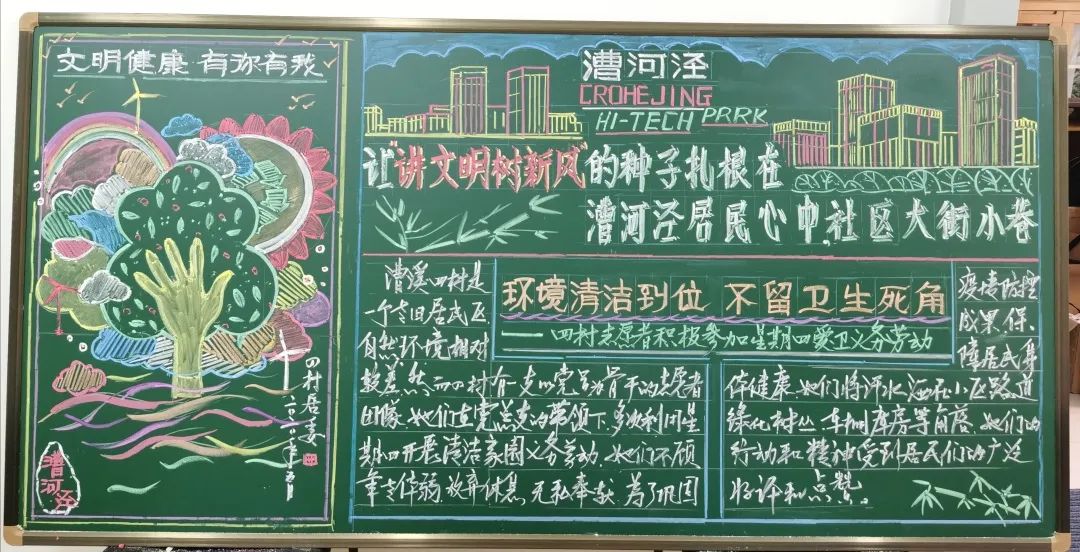 文明健康 有你有我
四村居委
漕河泾
漕河泾
CROHEJING
HI-TECH PRRK
让"讲文明树新风"的种子扎根在
漕河泾居民心中.社区大街小巷
环境清洁到位 不留卫生死角
——四村志愿者积极参加星期四爱卫义务劳动
漕溪四村是
一个老旧居民区
自然环境相对
较差.然而四村有一支以党员为骨干的志愿者
团队.她们在党总支的带领下,多次利用星
期四开展清洁家园义务劳动.她们不顾
年老体弱.放弃休息.无私奉献.为了巩固
疫情防控
成果.保
障居民身
体健康.她们将汗水洒在小区路道
绿化树丛.车棚库房等角落.她们的
行动和精神受到居民们的广泛
好评和点赞。